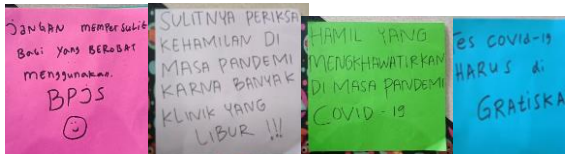 JANGAN MEMPERSULIT
BAGI YANG BEROBAT
menggunakan
BPJS
SULITNYA PERIKSA
KEHAMILAN DI
MASA PANDEMI
KARNA BANYAK
KLINIK YANG
LIBUR !!!
HAMIL YANG
MENGKHAWATIRKAN
DI MASA PANDEMI
COVID-19
es COVID-19
HARUS di
GRATISKA